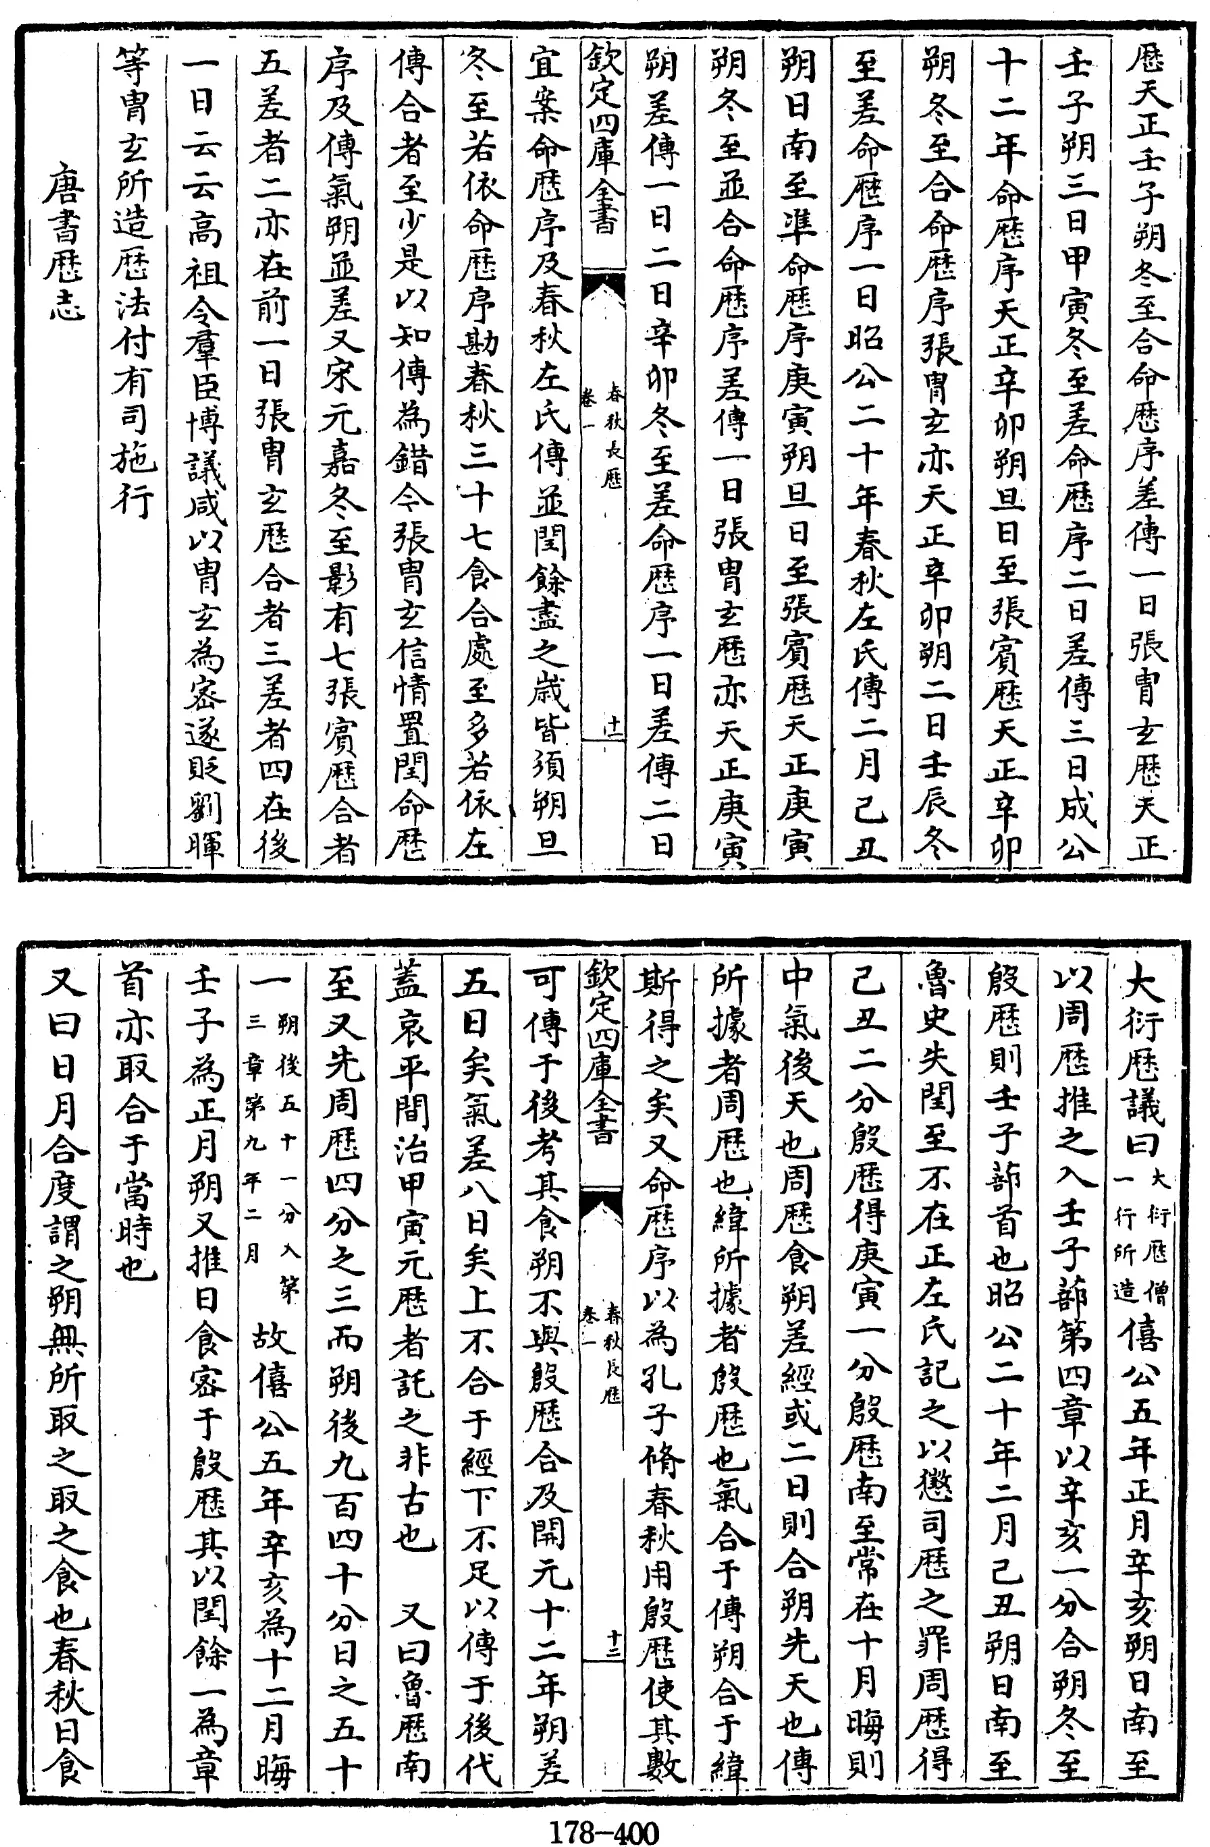 歴天正壬子朔冬至合命歴序差傳一日張胄玄歴天正
壬子朔三日甲寅冬至差命歴序二日差傳三日成公
十二年命歴序天正辛卯朔旦日至張賓歴天正辛卯
朔冬至合命歴序張胄玄亦天正辛卯朔二日壬辰冬
至差命歴序一日昭公二十年春秋左氏傳二月己丑
朔日南至準命歴序庚寅朔旦日至張賓歴天正庚寅
朔冬至並合命歴序差傳一日張胄玄歴亦天正庚寅
朔差傳一日二日辛卯冬至差命歴序一日差傳二日
欽定四庫全書
春秋長歴
卷一
十一
宜案命歴序及春秋左氏傳並閏餘盡之歲皆須朔旦
冬至若依命歴序勘春秋三十七食合處至多若依左
傳合者至少是以知傳為錯令張胄玄信情置閏命歴
序及傳氣朔並差又宋元嘉冬至影有七張賓歴合者
五差者二亦在前一日張胄玄歴合者三差者四在後
一日云云高祖令羣臣博議咸以胄玄為密遂貶劉暉
等胄玄所造歴法付有司施行
唐書歴志
大衍歴議曰大衍歴僧一行所造僖公五年正月辛亥朔日南至
以周歴推之入壬子蔀第四章以辛亥一分合朔冬至
殷歴則壬子蔀首也昭公二十年二月己丑朔日南至
魯史失閏至不在正左氏記之以懲司歴之罪周歴得
己丑二分殷歴得庚寅一分殷歴南至常在十月晦則
中氣後天也周歴食朔差經或二日則合朔先天也傳
所據者周歴也緯所據者殷歴也氣合于傳朔合于緯
斯得之矣又命歴序以為孔子脩春秋用殷歴使其數
欽定四庫全書
春秋長歴
卷一
十二
可傳于後考其食朔不與殷歴合及開元十二年朔差
五日矣氣差八日矣上不合于經下不足以傳于後代
蓋哀平間治甲寅元歴者託之非古也 又曰魯歴南
至又先周歴四分之三而朔後九百四十分日之五十
一朔後五十一分入第三章第九年二月故僖公五年辛亥為十二月晦
壬子為正月朔又推日食密于殷歴其以閏餘一為章
首亦取合于當時也
又曰日月合度謂之朔無所取之取之食也春秋日食
178-400